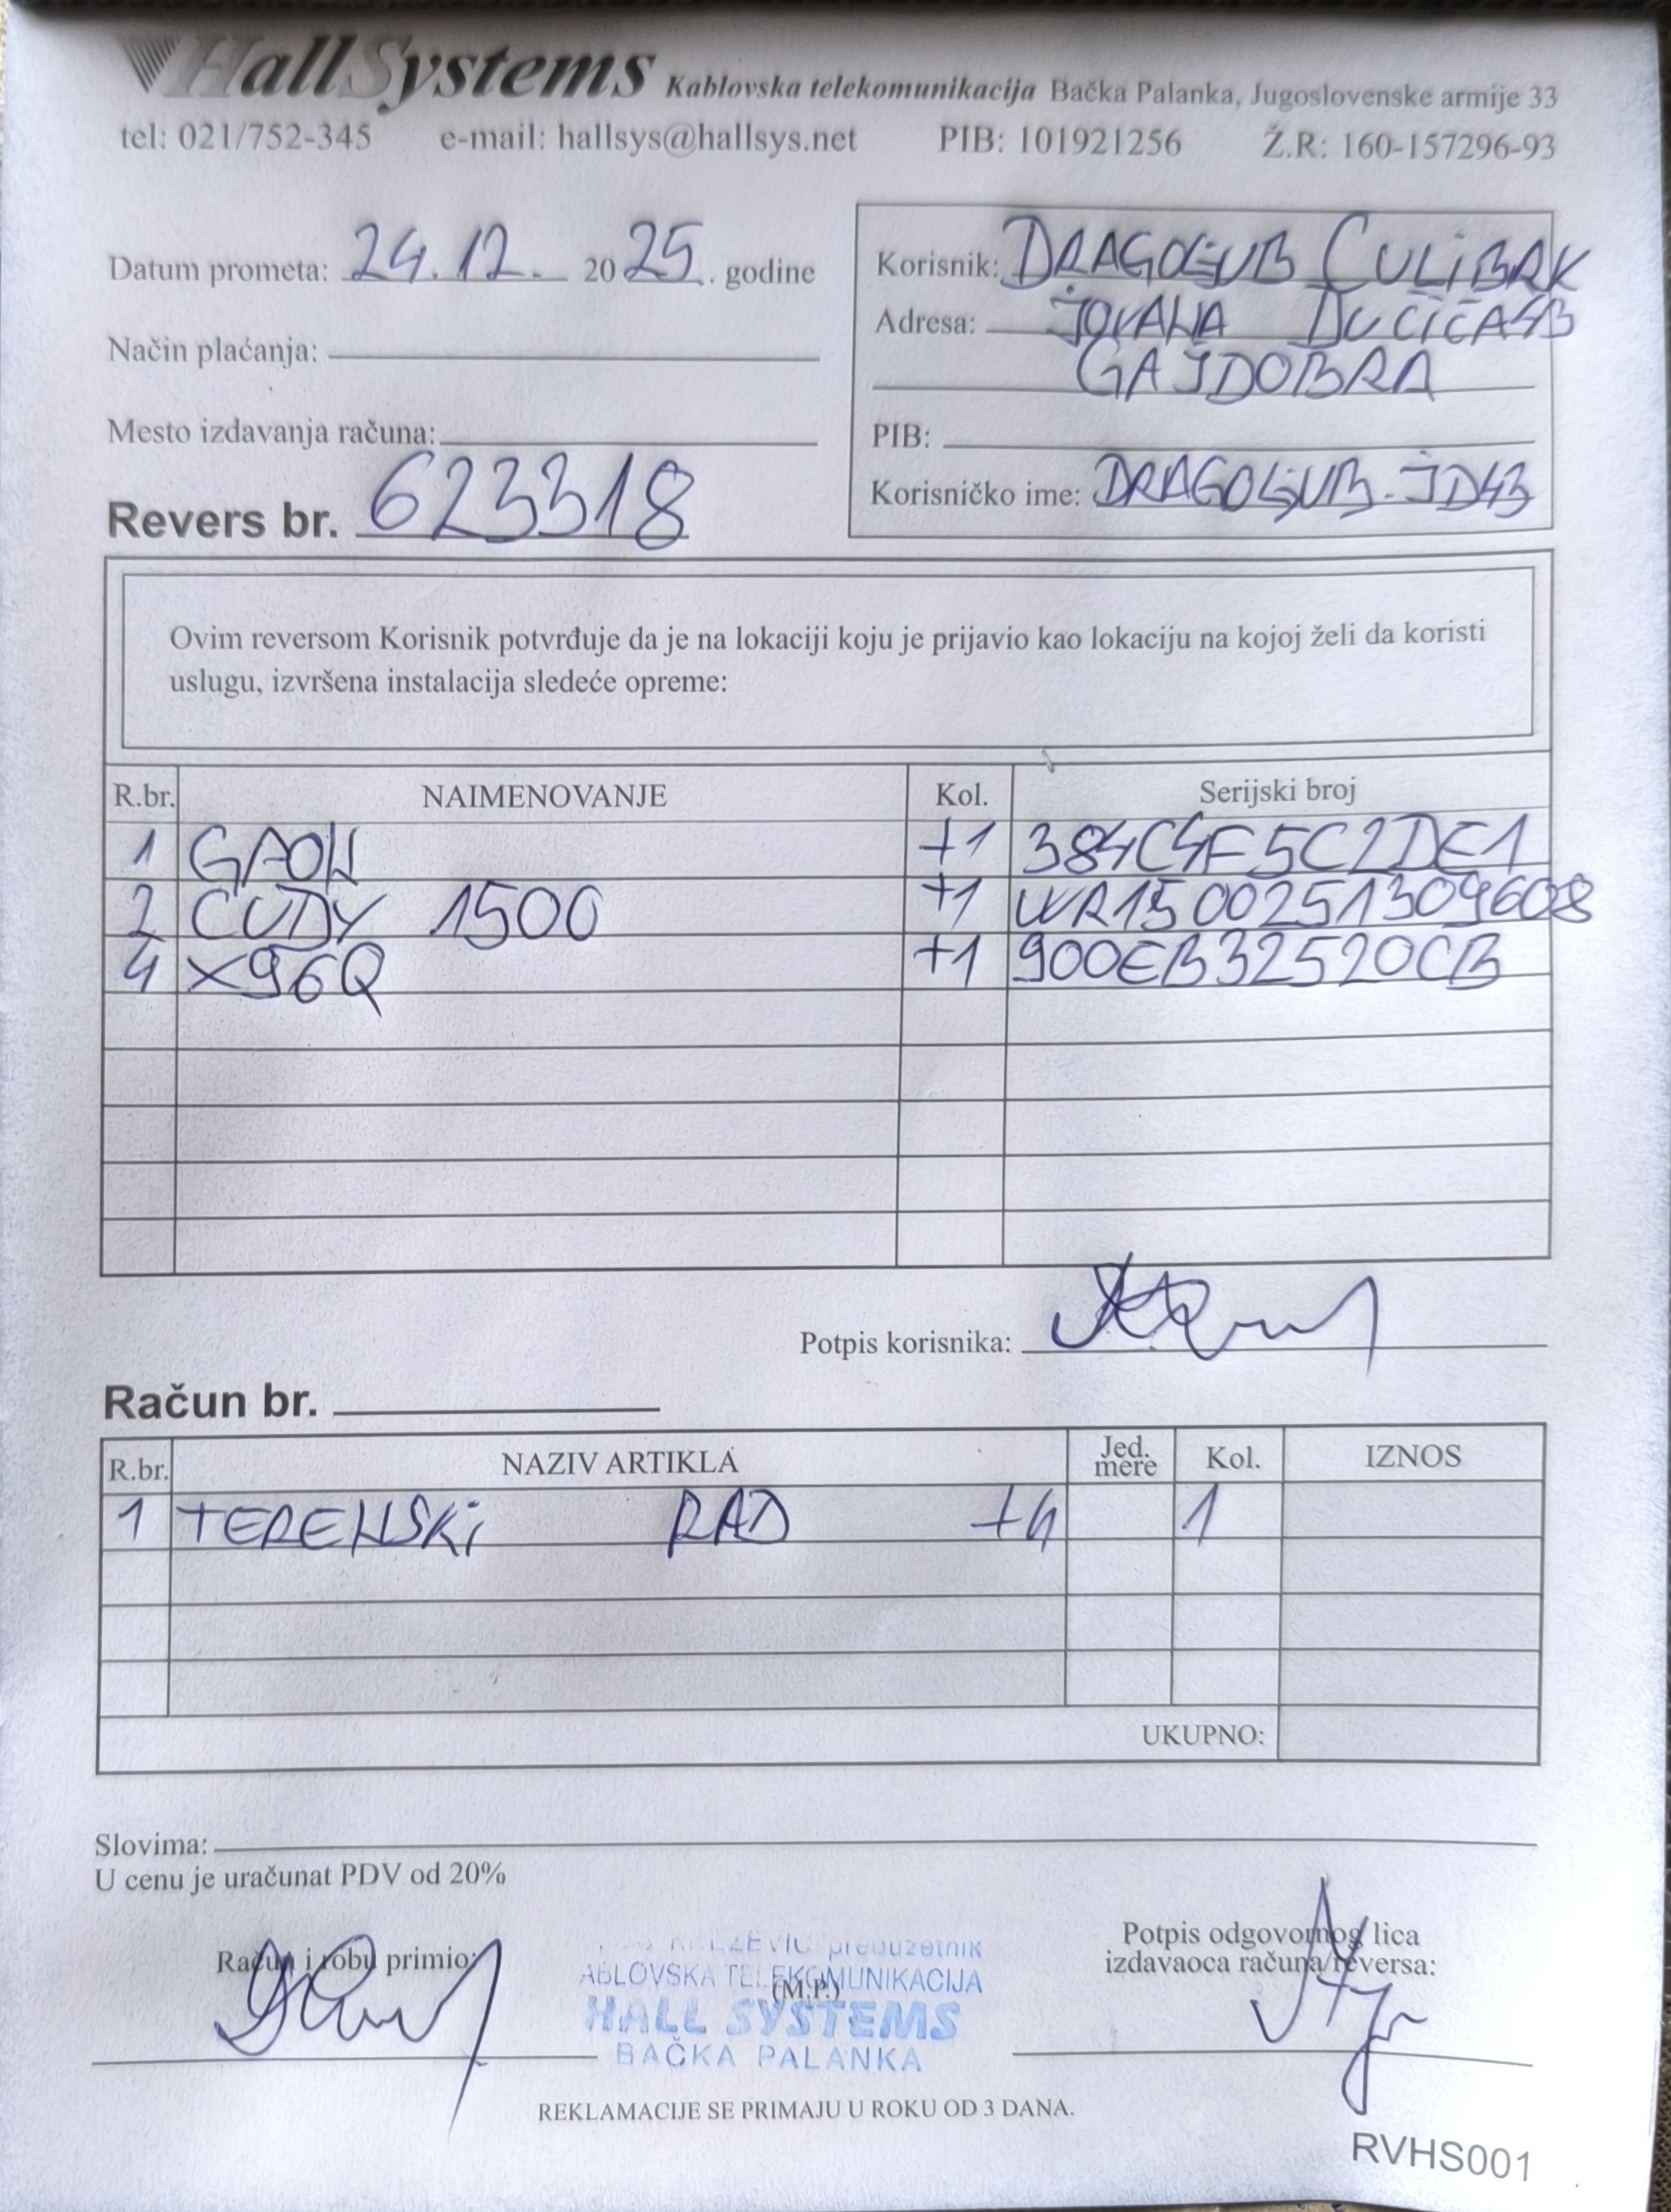 HallSystems Kablovska telekomunikacija Bačka Palanka, Jugoslovenske armije 33
tel: 021/752-345 e-mail: hallsys@hallsys.net PIB: 101921256 Ž.R: 160-157296-93
Datum prometa: 24.12. 2025. godine
Način plaćanja:
Mesto izdavanja računa:
Revers br. 623318
Korisnik: DRAGOLJUB ĆULIBRK
Adresa: JOVANA DUČIĆA 43
GAJDOBRA
PIB:
Korisničko ime: DRAGOLJUB.JD43
Ovim reversom Korisnik potvrđuje da je na lokaciji koju je prijavio kao lokaciju na kojoj želi da koristi
uslugu, izvršena instalacija sledeće opreme:
R.br. NAIMENOVANJE Kol. Serijski broj
1 GAON +1 384C4F5C2DE1
2 CUDY 1500 +1 WR1500251309608
4 X96Q +1 900EB32520CB
Potpis korisnika:
Račun br.
R.br. NAZIV ARTIKLA Jed. mere Kol. IZNOS
1 TERENSKI RAD +4 1
UKUPNO:
Slovima:
U cenu je uračunat PDV od 20%
Račun i robu primio:
preduzetnik
ABLOVSKA TELEKOMUNIKACIJA
(M.P.)
HALL SYSTEMS
BAČKA PALANKA
Potpis odgovornog lica
izdavaoca računa/reversa:
REKLAMACIJE SE PRIMAJU U ROKU OD 3 DANA.
RVHS001